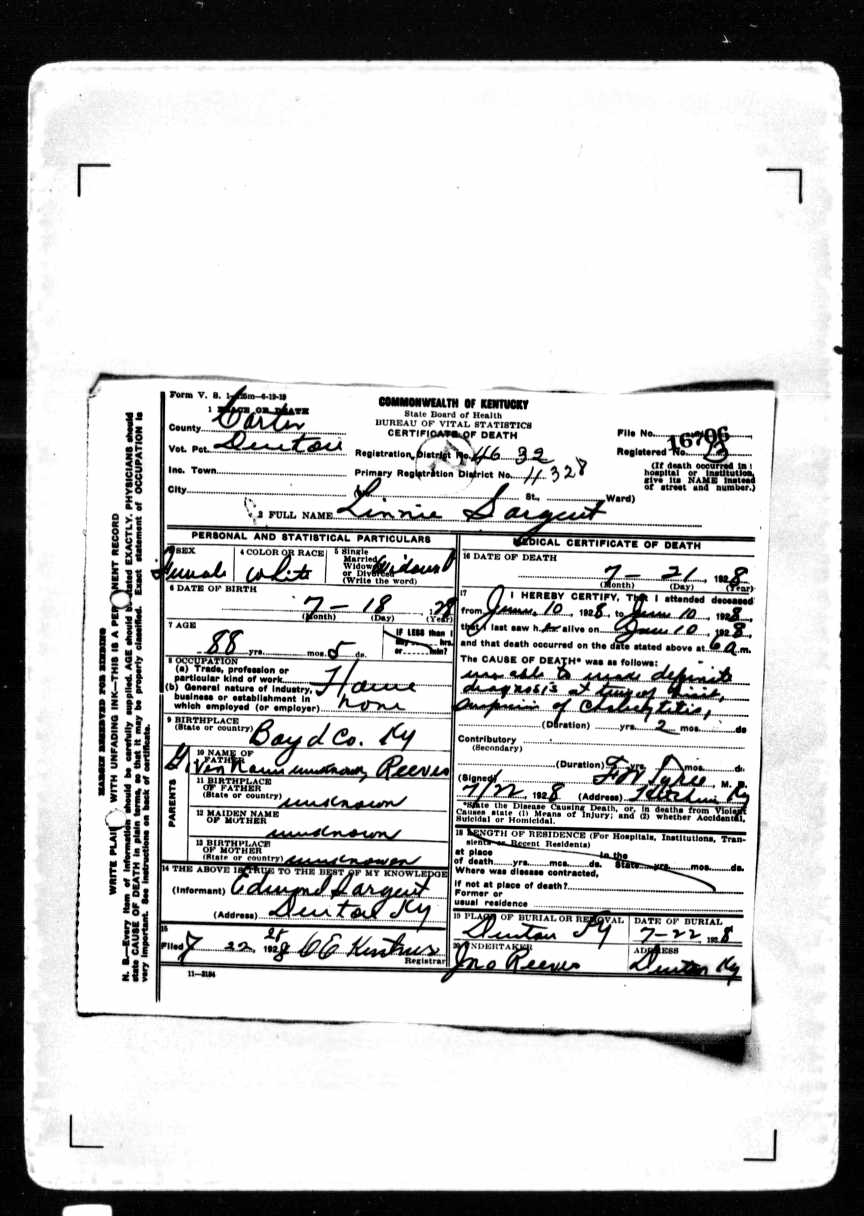 Form V. S. 1- 6-19-19
1 PLACE OF DEATH
COMMONWEALTH OF KENTUCKY
State Board of Health
BUREAU OF VITAL STATISTICS
CERTIFICATE OF DEATH
County Carter
Vot. Pct. Denton
Inc. Town
City
Registration District No. 46 32
Primary Registration District No. 4328
St., Ward)
File No. 16706
Registered No.
(If death occurred in
hospital or institution,
give its NAME instead
of street and number.)
2 FULL NAME Linnie Sargent
PERSONAL AND STATISTICAL PARTICULARS
3 SEX Female
4 COLOR OR RACE White
5 Single
Married
Widowed
or Divorced
(Write the word) Widowed
6 DATE OF BIRTH
7-18, 1 28
(Month) (Day) (Year)
7 AGE
88 yrs. mos. 5 ds.
IF LESS than 1
day hrs.
or min?
8 OCCUPATION
(a) Trade, profession or
particular kind of work
(b) General nature of industry,
business or establishment in
which employed (or employer)
none
9 BIRTHPLACE
(State or country) Boyd Co. Ky
10 NAME OF
FATHER
Given Name unknown, Reeves
PARENTS
11 BIRTHPLACE
OF FATHER
(State or country) unknown
12 MAIDEN NAME
OF MOTHER
unknown
13 BIRTHPLACE
OF MOTHER
(State or country) unknowen
14 THE ABOVE IS TRUE TO THE BEST OF MY KNOWLEDGE
(Informant) Edmond Sargent
(Address) Denton Ky
15
Filed 7 22, 1928
28
Registrar
11-3184
MEDICAL CERTIFICATE OF DEATH
16 DATE OF DEATH
7-21, 1928
(Month) (Day) (Year)
17 I HEREBY CERTIFY, That I attended deceased
from June 10, 1928, to June 10, 1928,
that I last saw her alive on June 10, 1928,
and that death occurred on the date stated above at 6 a m.
The CAUSE OF DEATH* was as follows:
unable to made definite
diagnosis at time of visit,
(Duration) yrs. 2 mos. ds
Contributory
(Secondary)
(Duration) yrs. mos. ds.
(Signed) M. D.
7/22, 1928 (Address) Ky
*State the Disease Causing Death, or, in deaths from Violent
Causes state (1) Means of Injury; and (2) whether Accidental,
Suicidal or Homicidal.
18 LENGTH OF RESIDENCE (For Hospitals, Institutions, Tran-
sients or Recent Residents)
at place in the
of death yrs. mos. ds. State yrs. mos. ds.
Where was disease contracted,
if not at place of death?
Former or
usual residence
19 PLACE OF BURIAL OR REMOVAL
Denton Ky
DATE OF BURIAL
7-22, 1928
20 UNDERTAKER
Jno Reeves
ADDRESS
Denton Ky
MARGIN RESERVED FOR BINDING
WRITE PLAINLY WITH UNFADING INK—THIS IS A PERMANENT RECORD
N. B.—Every item of information should be carefully supplied. AGE should be stated EXACTLY. PHYSICIANS should
state CAUSE OF DEATH in plain terms, so that it may be properly classified. Exact statement of OCCUPATION is
very important. See instructions on back of certificate.